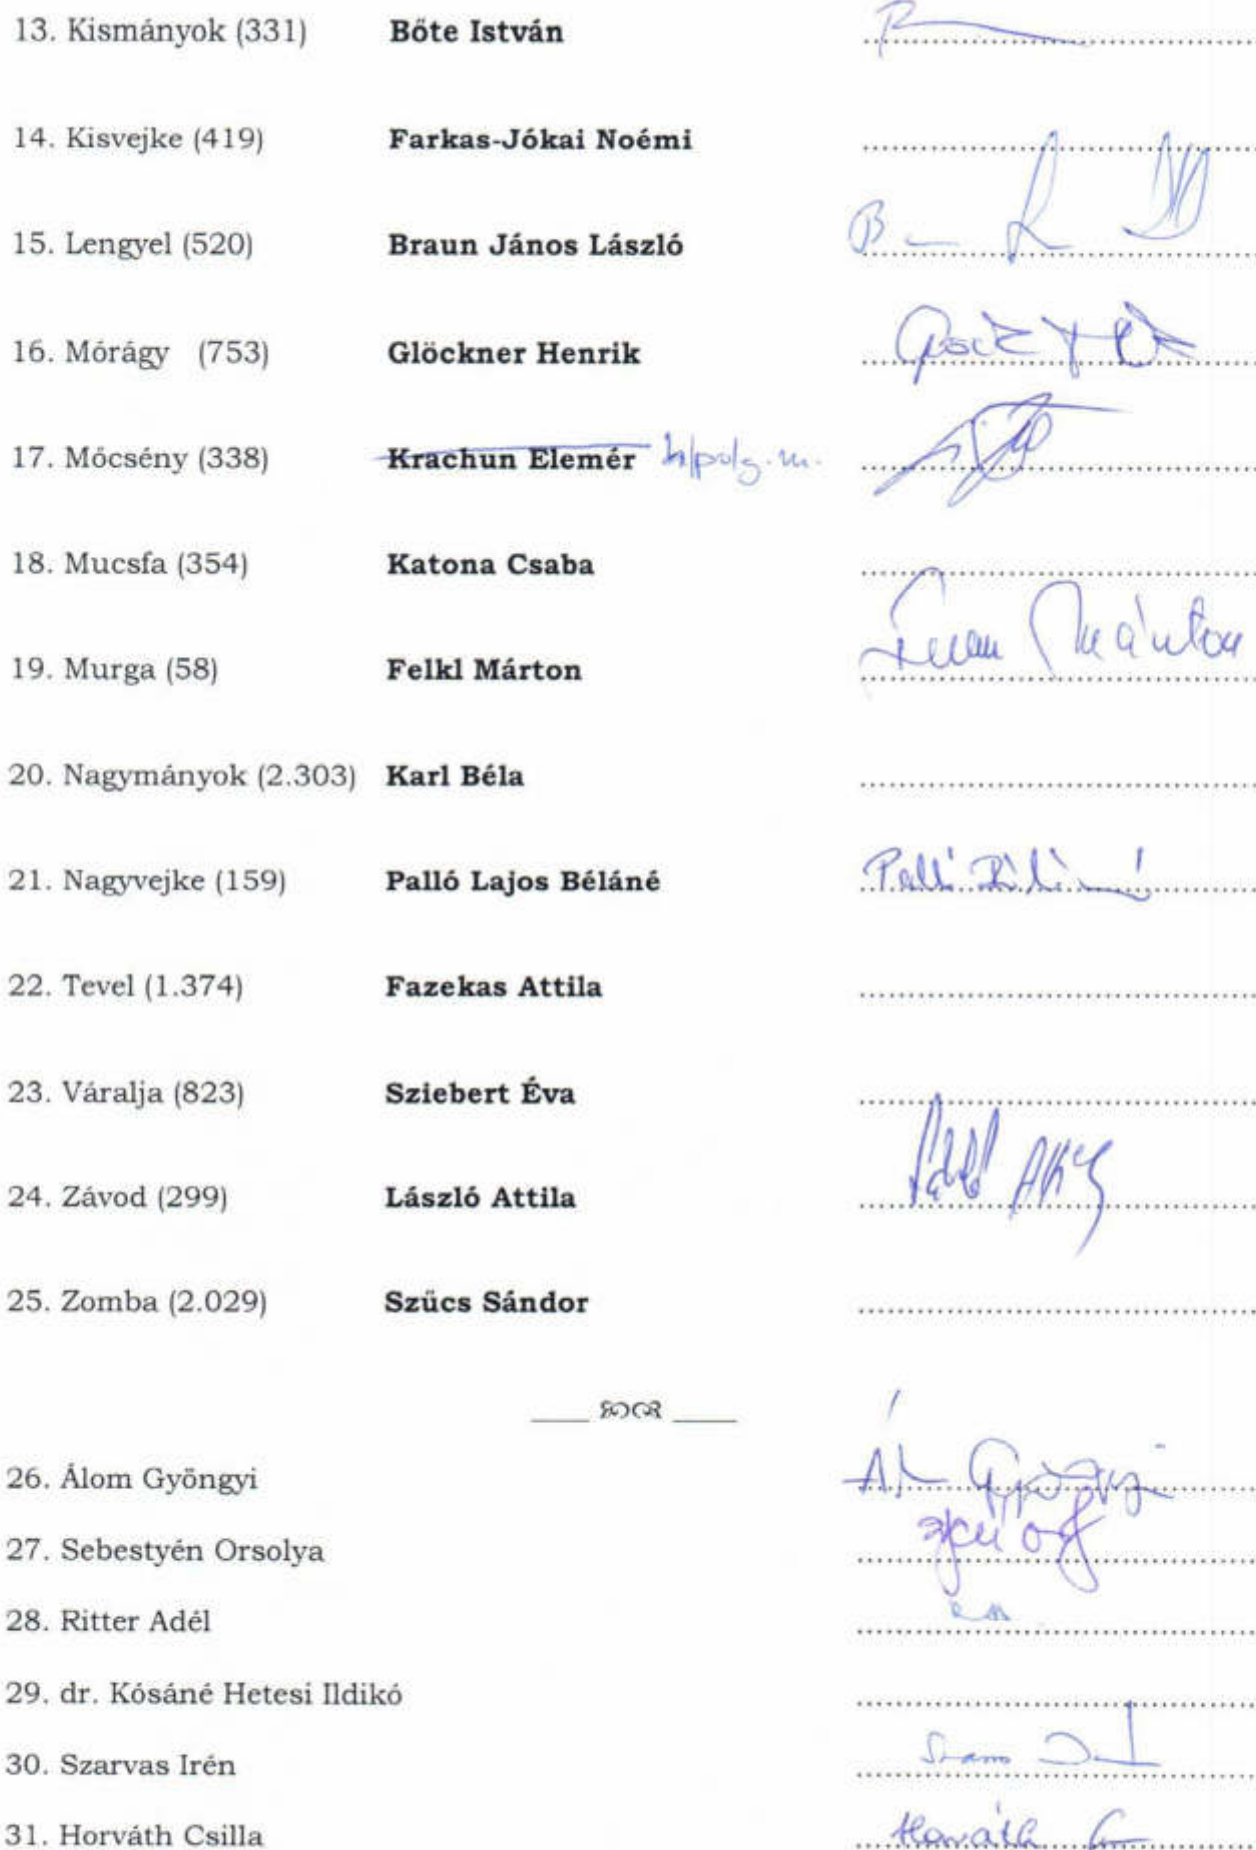 13. Kismányok (331) Bőte István
14. Kisvejke (419) Farkas-Jókai Noémi
15. Lengyel (520) Braun János László
16. Mórágy (753) Glöckner Henrik
17. Mőcsény (338) Krachun Elemér h/polg.m.
18. Mucsfa (354) Katona Csaba
19. Murga (58) Felkl Márton Márton
20. Nagymányok (2.303) Karl Béla
21. Nagyvejke (159) Palló Lajos Béláné
22. Tevel (1.374) Fazekas Attila
23. Váralja (823) Sziebert Éva
24. Závod (299) László Attila
25. Zomba (2.029) Szűcs Sándor
26. Álom Gyöngyi
27. Sebestyén Orsolya
28. Ritter Adél
29. dr. Kósáné Hetesi Ildikó
30. Szarvas Irén
31. Horváth Csilla Horváth